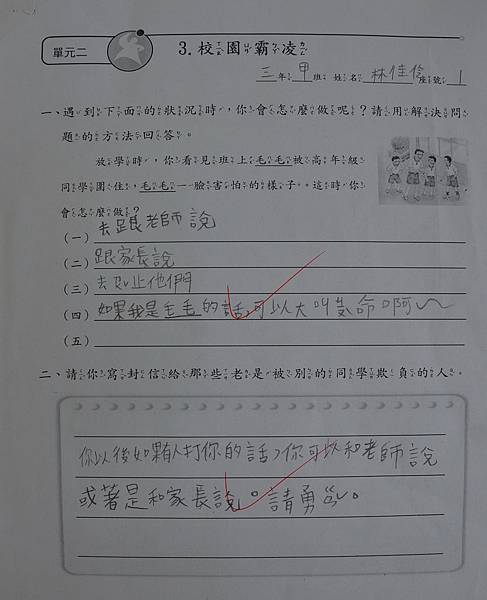 單元二
3.校園霸凌
三年甲班 姓名：林佳 座號：1
一、遇到下面的狀況時，你會怎麼做呢？請用解決問
題的方法回答。
放學時，你看見班上毛毛被高年級
同學圍住，毛毛一臉害怕的樣子。這時你
會怎麼做？
(一) 去跟老師說
(二) 跟家長說
(三) 去ㄗㄨˇ止他們
(四) 如果我是毛毛的話，可以大叫救命啊～
(五)
二、請你寫封信給那些老是被別的同學欺負的人。
你以後如果有人打你的話，你可以和老師說
或著是和家長說。請勇ㄍㄢˇ。